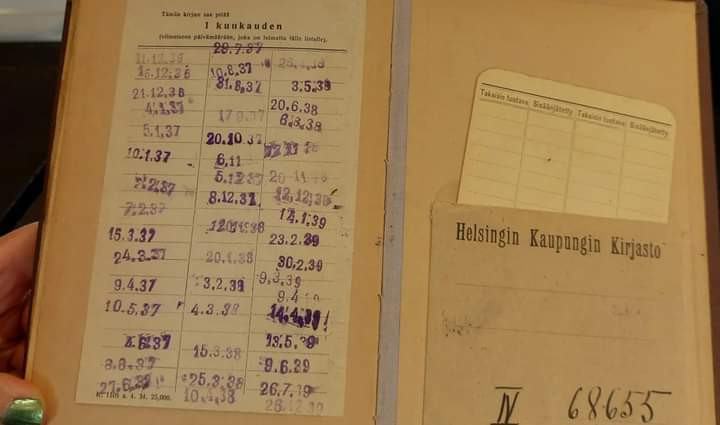 Tämän kirjan saa pitää
1 kuukauden
(viimeiseen päivämäärään, joka on leimattu tälle listalle).
11.12.36
15.12.36
21.12.36
4.1.37
5.1.37
10.1.37
7.2.37
15.3.37
24.3.37
9.4.37
10.5.37
4.6.37
8.6.37
27.6.37
28.7.37
10.8.37
31.8.37
20.10.37
6.11
5.12.37
8.12.37
20.1.38
3.2.38
4.3.38
15.3.38
25.3.38
10.4.38
3.5.38
20.6.38
8.8.38
12.12.38
17.1.39
23.2.39
30.2.39
9.3.39
9.4
14.4.39
13.5.39
9.6.39
26.7.39
26.12.39
a. 4. 34. 25,000.
Takaisin tuotava Sisäänjätetty Takaisin tuotava Sisäänjätetty
Helsingin Kaupungin Kirjasto
IV 68655